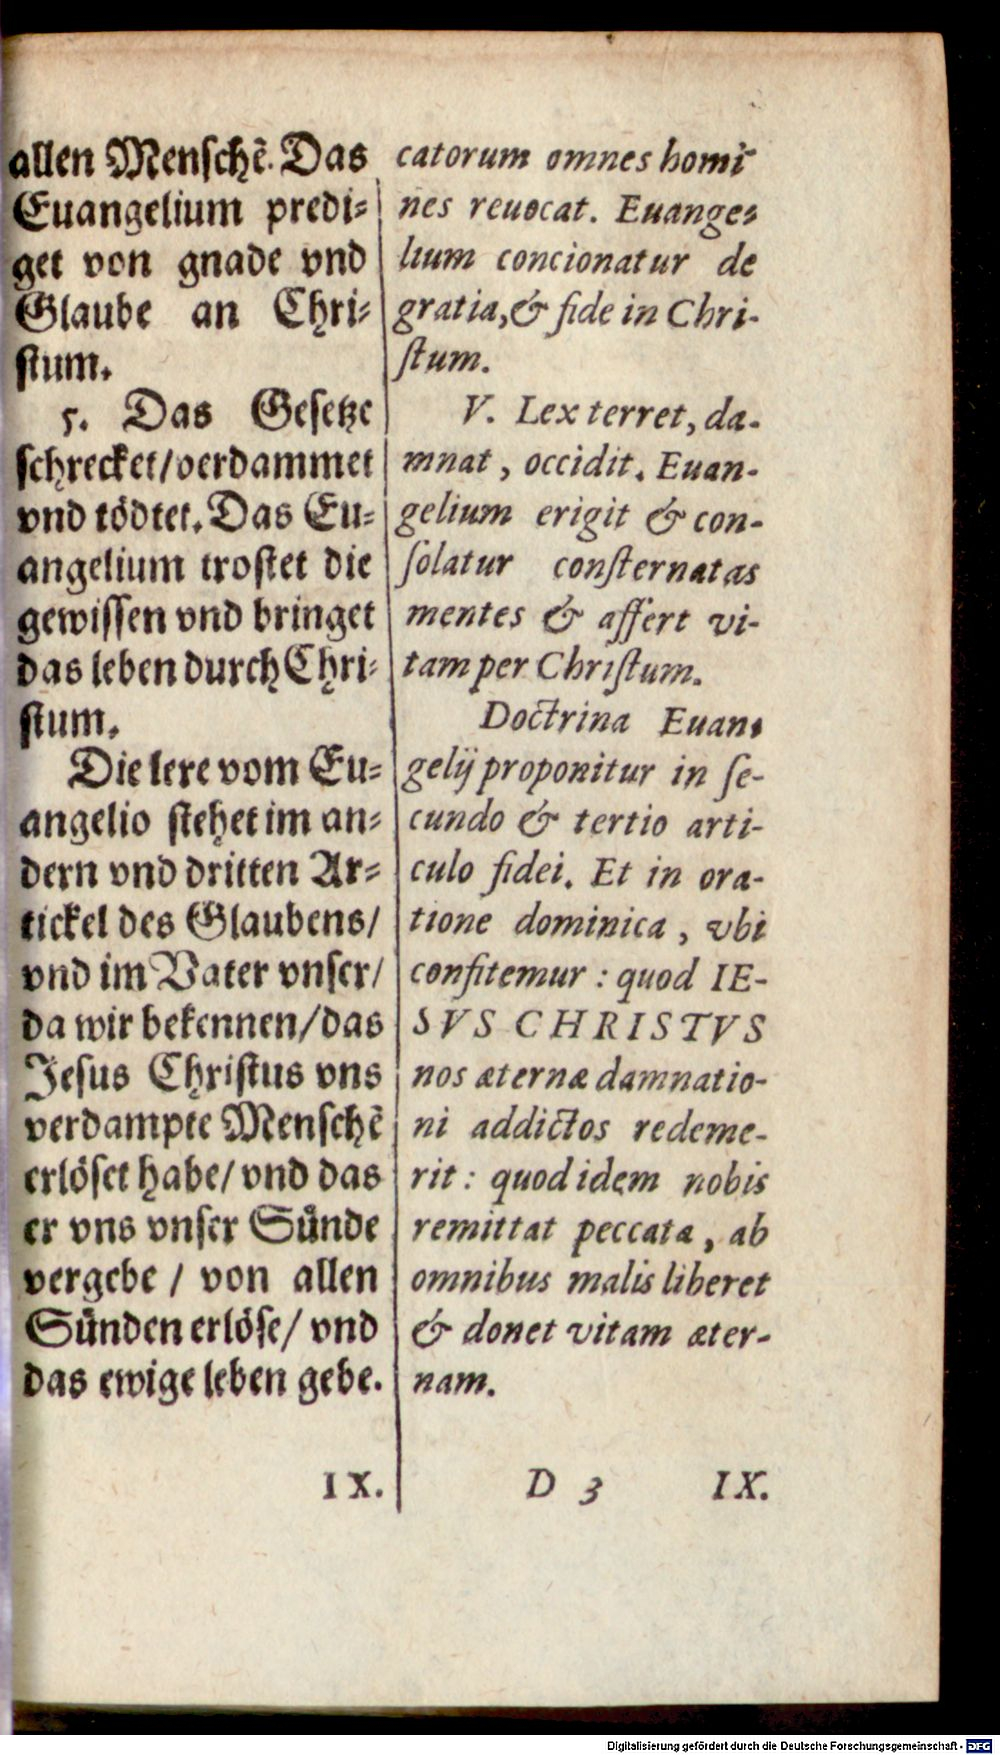 allen Menschẽ. Das
Euangelium predi⸗
get von gnade vnd
Glaube an Chri⸗
stum.
5. Das Gesetze
schrecket/verdammet
vnd tödtet. Das Eu⸗
angelium trostet die
gewissen vnd bringet
das leben durch Chri⸗
stum.
Die lere vom Eu⸗
angelio stehet im an⸗
dern vnd dritten Ar⸗
tickel des Glaubens/
vnd im Vater vnser/
da wir bekennen/das
Jesus Christus vns
verdampte Menschẽ
erlöset habe/ vnd das
er vns vnser Sünde
vergebe / von allen
Sünden erlöse/ vnd
das ewige leben gebe.
IX.
catorum omnes homi-
nes reuocat. Euange-
lium concionatur de
gratia, & fide in Chri-
ſtum.
V. Lex terret, da-
mnat, occidit. Euan-
gelium erigit & con-
ſolatur conſternatas
mentes & affert vi-
tam per Chriſtum.
Doctrina Euan-
gelij proponitur in ſe-
cundo & tertio arti-
culo fidei. Et in ora-
tione dominica, vbi
confitemur : quod IE-
SVS CHRISTVS
nos æternæ damnatio-
ni addictos redeme-
rit : quod idem nobis
remittat peccata, ab
omnibus malis liberet
& donet vitam æter-
nam.
D 3 IX.
Digitalisierung gefördert durch die Deutsche Forschungsgemeinschaft - DFG